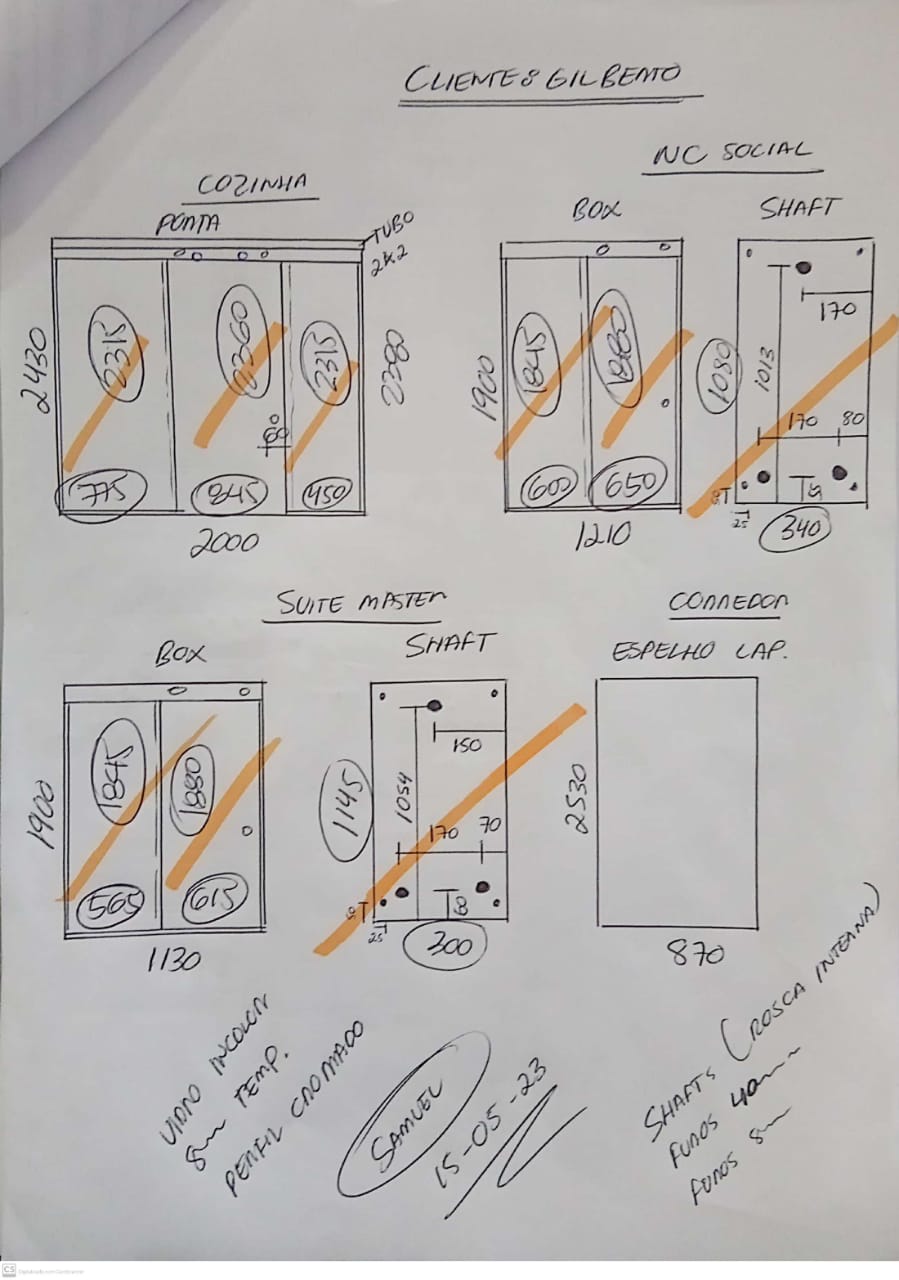 CLIENTE: GILBERTO
COZINHA
PORTA
TUBO
2x2
2430
2315
2360
2315
2380
60
775
845
450
2000
WC SOCIAL
BOX
SHAFT
1900
1845
1880
600
650
1210
170
1080
1013
170
80
25
340
SUITE MASTER
BOX
SHAFT
1900
1845
1880
565
615
1130
150
1145
1054
170
70
50
25
300
CORREDOR
ESPELHO LAP.
2530
870
VIDRO INCOLOR
8mm TEMP.
PERFIL CROMADO
SAMUEL
15-05-23
SHAFTS (ROSCA INTERNA)
FUROS 40mm
FUROS 8mm
CS Digitalizado com CamScanner